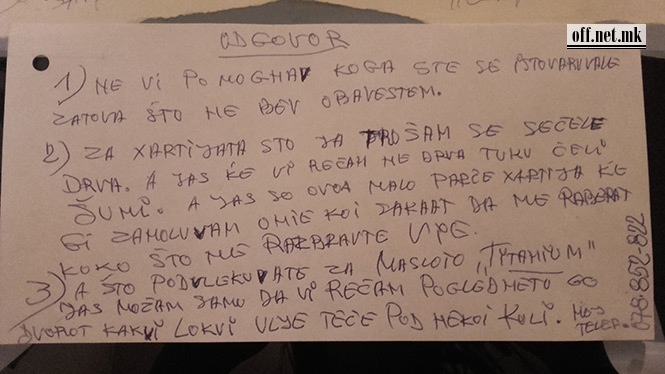 off.net.mk
ODGOVOR
1) NE VI POMOGNAV KOGA STE SE ISTOVARUVALE
ZATOVA ŠTO NE BEV OBAVESTEN.
2) ZA XARTIJATA STO JA TROŠAM SE SEČELE
DRVA. A JAS ḰE VI REČAM NE DRVA TUKU ČELI
ŠUMI. A JAS SO OVOA MALO PARČE XARTIJA ḰE
GI ZAMOLUVAM ONIE KOI SAKAAT DA ME RABERAT
KOKO ŠTO ME RAZBRAVTE VIE.
3) A ŠTO PODVLEKUVATE ZA MASLOTO „TYTANIUM"
JAS MOŽAM SAMO DA VI REČAM POGLEDNETO GO
DVOROT KAKVI LOKVI ULJE TEČE POD NEKOI KOLI. MOJ
TELEF.
078-852-822